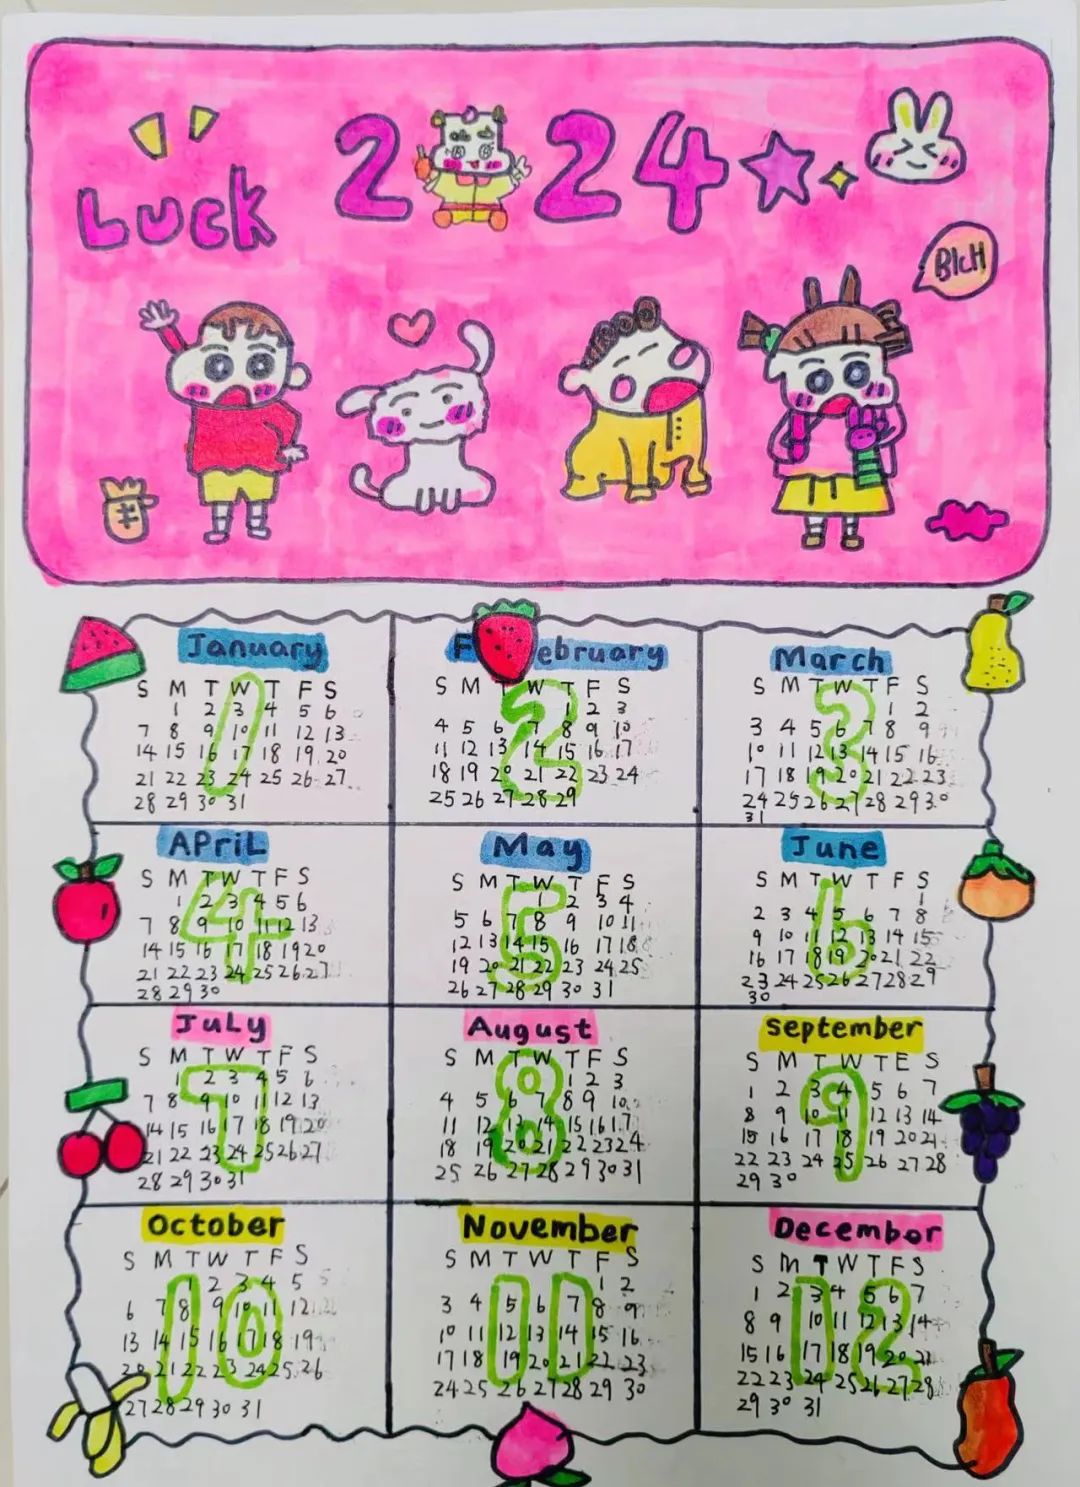 Luck
2 24
BIcH
January
S M T W T F S
1 2 3 4 5 6
7 8 9 10 11 12 13
14 15 16 17 18 19 20
21 22 23 24 25 26 27
28 29 30 31
February
S M T W T F S
1 2 3
4 5 6 7 8 9 10
11 12 13 14 15 16 17
18 19 20 21 22 23 24
25 26 27 28 29
March
S M T W T F S
1 2
3 4 5 6 7 8 9
10 11 12 13 14 15 16
17 18 19 20 21 22 23
24 25 26 27 28 29 30
31
APriL
S M T W T F S
1 2 3 4 5 6
7 8 9 10 11 12 13
14 15 16 17 18 19 20
21 22 23 24 25 26 27
28 29 30
May
S M T W T F S
1 2 3 4
5 6 7 8 9 10 11
12 13 14 15 16 17 18
19 20 21 22 23 24 25
26 27 28 29 30 31
June
S M T W T F S
1
2 3 4 5 6 7 8
9 10 11 12 13 14 15
16 17 18 19 20 21 22
23 24 25 26 27 28 29
30
JuLy
S M T W T F S
1 2 3 4 5 6
7 8 9 10 11 12 13
14 15 16 17 18 19 20
21 22 23 24 25 26 27
28 29 30 31
August
S M T W T F S
1 2 3
4 5 6 7 8 9 10
11 12 13 14 15 16 17
18 19 20 21 22 23 24
25 26 27 28 29 30 31
september
S M T W T E S
1 2 3 4 5 6 7
8 9 10 11 12 13 14
15 16 17 18 19 20 21
22 23 24 25 26 27 28
29 30
October
S M T W T F S
1 2 3 4 5
6 7 8 9 10 11 12
13 14 15 16 17 18 19
20 21 22 23 24 25 26
27 28 29 30 31
November
S M T W T F S
1 2
3 4 5 6 7 8 9
10 11 12 13 14 15 16
17 18 19 20 21 22 23
24 25 26 27 28 29 30
Decembor
S M T W T F S
1 2 3 4 5 6 7
8 9 10 11 12 13 14
15 16 17 18 19 20 21
22 23 24 25 26 27 28
29 30 31
1
2
3
4
5
6
7
8
9
10
11
12